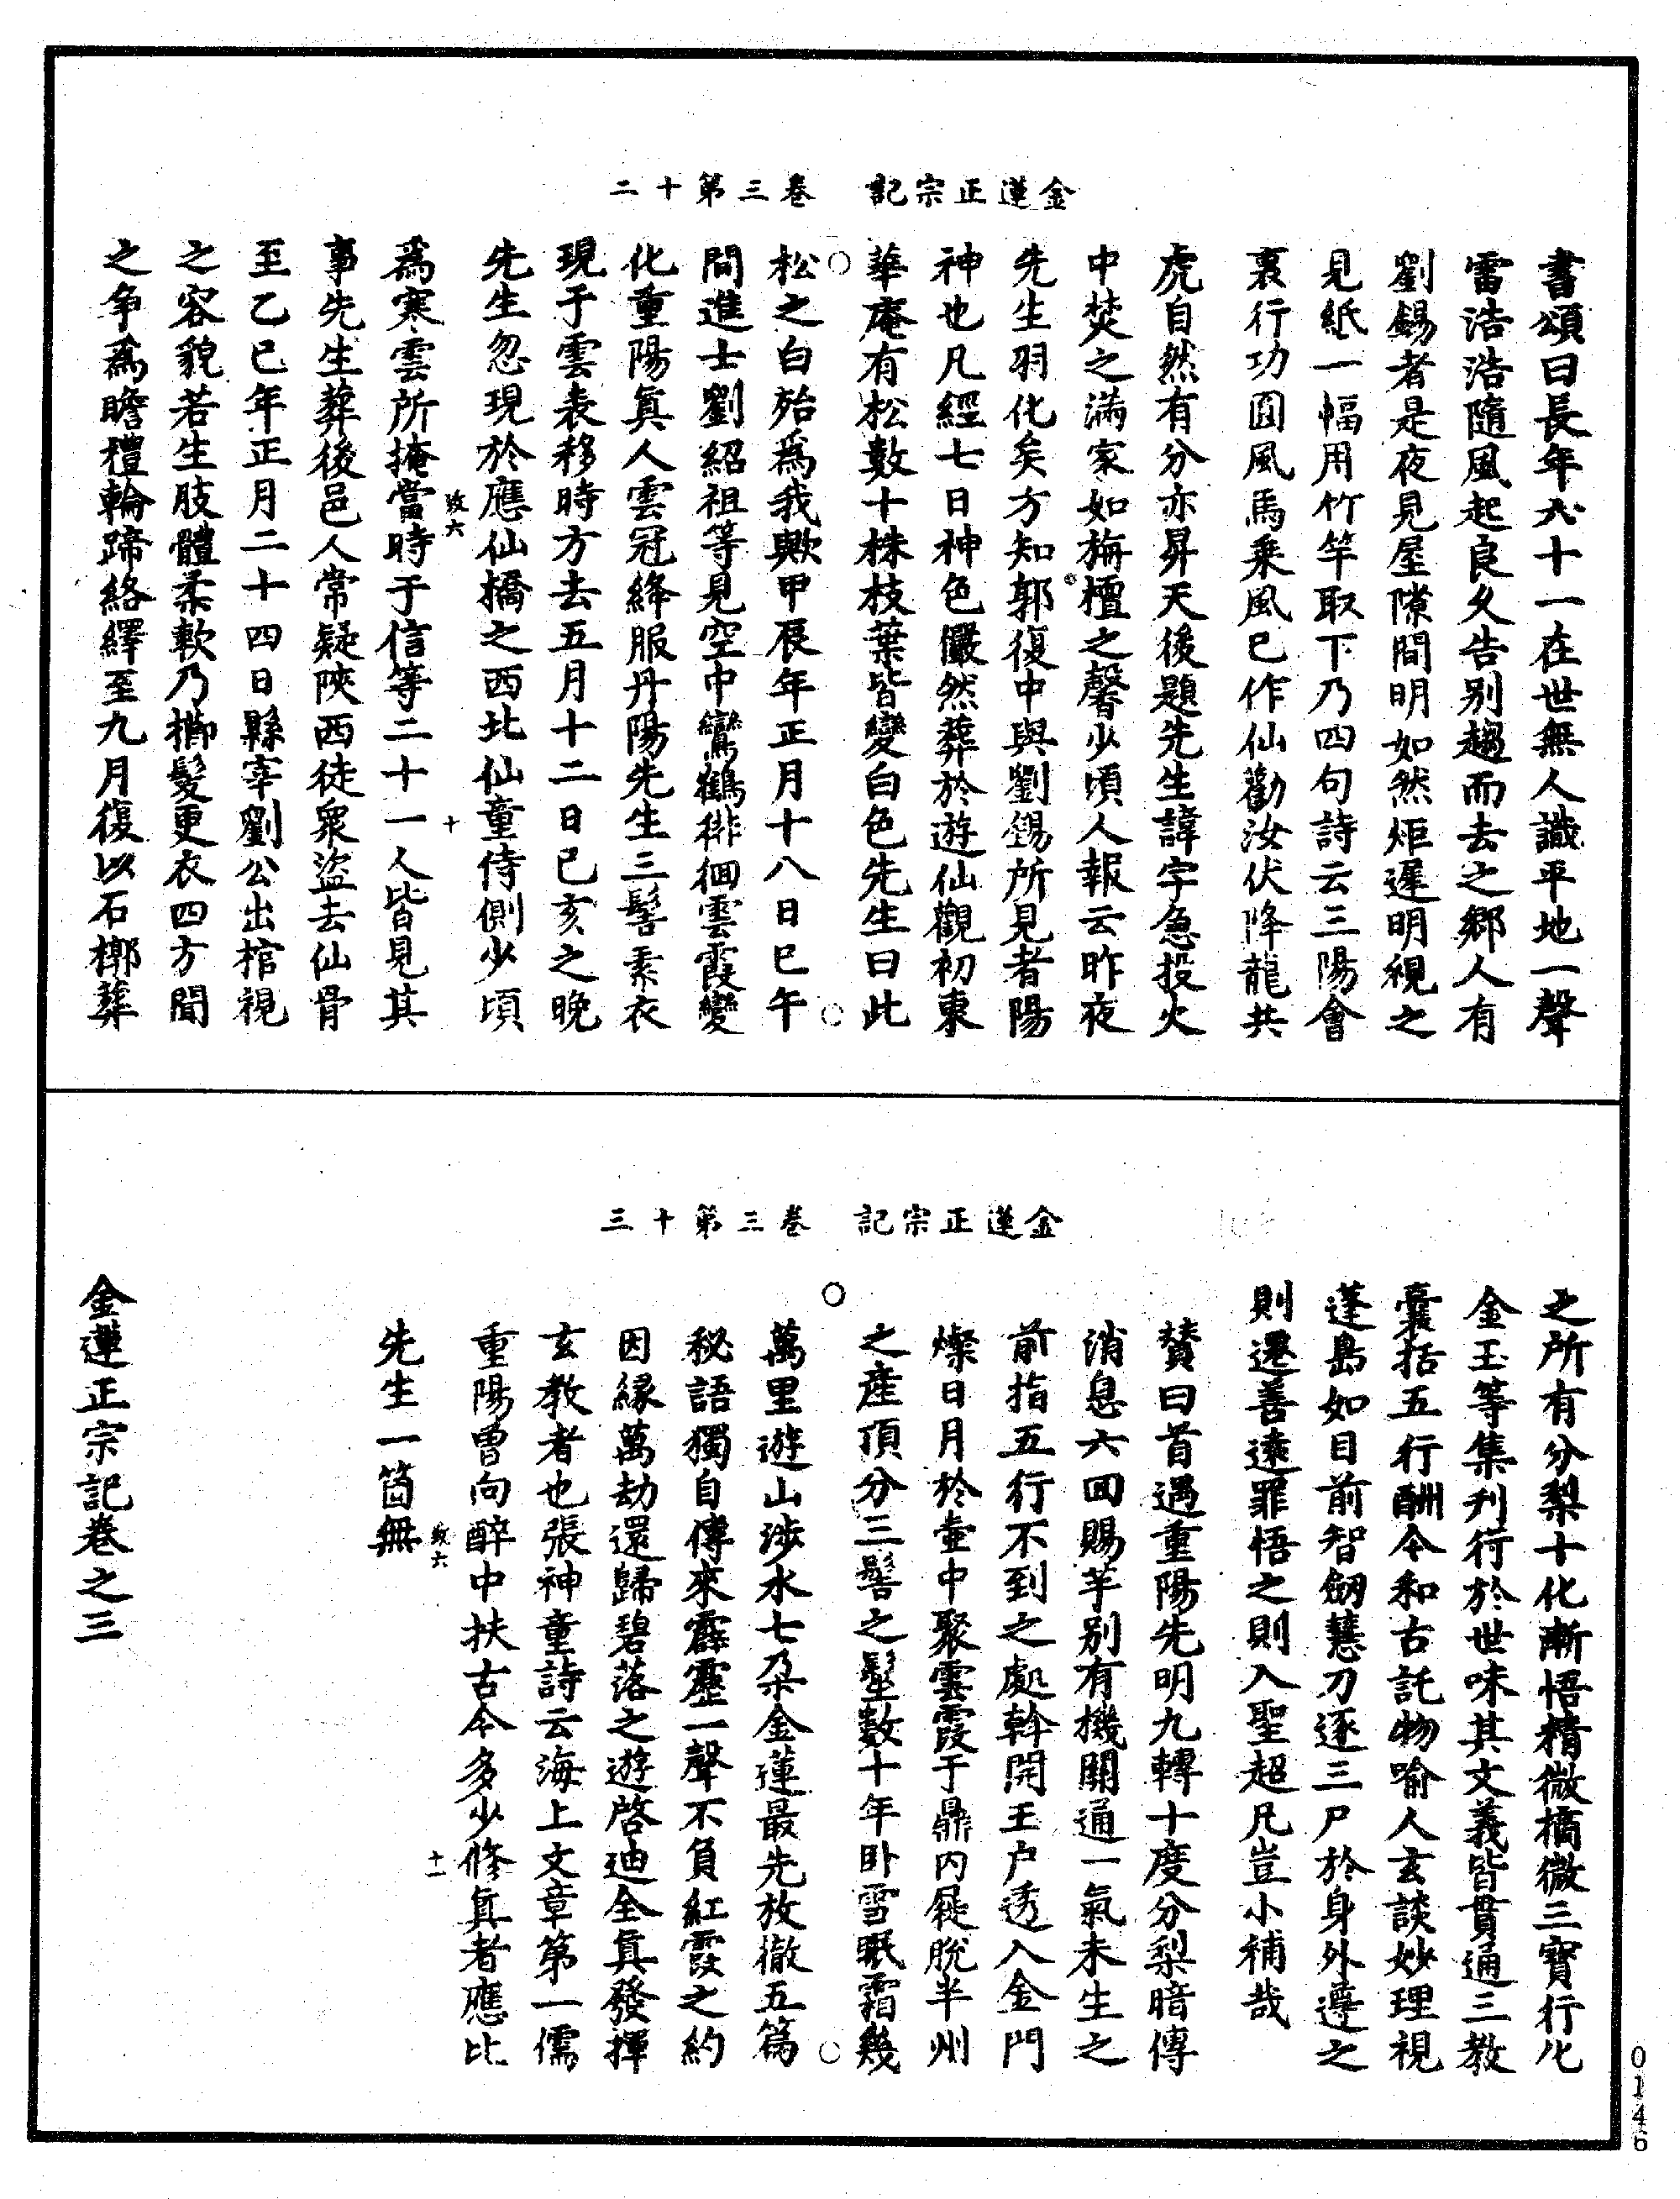 金蓮正宗記　卷三第十二
書頌曰長年六十一在世無人識平地一聲
雷浩浩隨風起良久告别趨而去之鄉人有
劉錫者是夜見屋隙間明如然炬遲明視之
見紙一幅用竹竿取下乃四句詩云三陽會
裏行功圓風馬乗風已作仙勸汝伏降龍共
虎自然有分亦昇天後題先生諱字急投火
中焚之滿家如旃檀之馨少頃人報云昨夜
先生羽化矣方知郭復中與劉錫所見者陽
神也凡經七日神色儼然葬於遊仙觀初東
華庵有松數十株枝葉皆變白色先生曰此
松之白殆爲我歟甲辰年正月十八日巳午
間進士劉紹祖等見空中鸞鶴徘徊雲霞變
化重陽真人雲冠絳服丹陽先生三髻素衣
現于雲表移時方去五月十二日已亥之晚
先生忽現於應仙橋之西北仙童侍側少頃
致六　十
爲寒雲所掩當時于信等二十一人皆見其
事先生葬後邑人常疑陜西徒衆盗去仙骨
至乙巳年正月二十四日縣宰劉公出棺視
之容貌若生肢體柔軟乃櫛髮更衣四方聞
之争爲瞻禮輪蹄絡繹至九月復以石槨葬
金蓮正宗記　卷三第十三
之所有分梨十化漸悟精微摘微三寶行化
金玉等集刋行於世味其文義皆貫通三教
囊括五行酬今和古託物喻人玄談妙理視
蓬島如目前智劒慧刀逐三尸於身外遵之
則遷善遠罪悟之則入聖超凡豈小補哉
賛曰首遇重陽先明九轉十度分梨暗傳
消息六回賜芋别有機關通一氣未生之
前指五行不到之處斡開玉户透入金門
燦日月於壺中聚雲霞于鼎内屣脫半州
之産頂分三髻之髽數十年卧雪眠霜幾
萬里遊山涉水七朶金蓮最先放徹五篇
秘語獨自傳來霹靂一聲不負紅霞之約
因緣萬劫還歸碧落之遊啓迪全真發揮
玄教者也張神童詩云海上文章第一儒
重陽曽向醉中扶古今多少修真者應比
致六　十一
先生一箇無
金蓮正宗記卷之三
0146